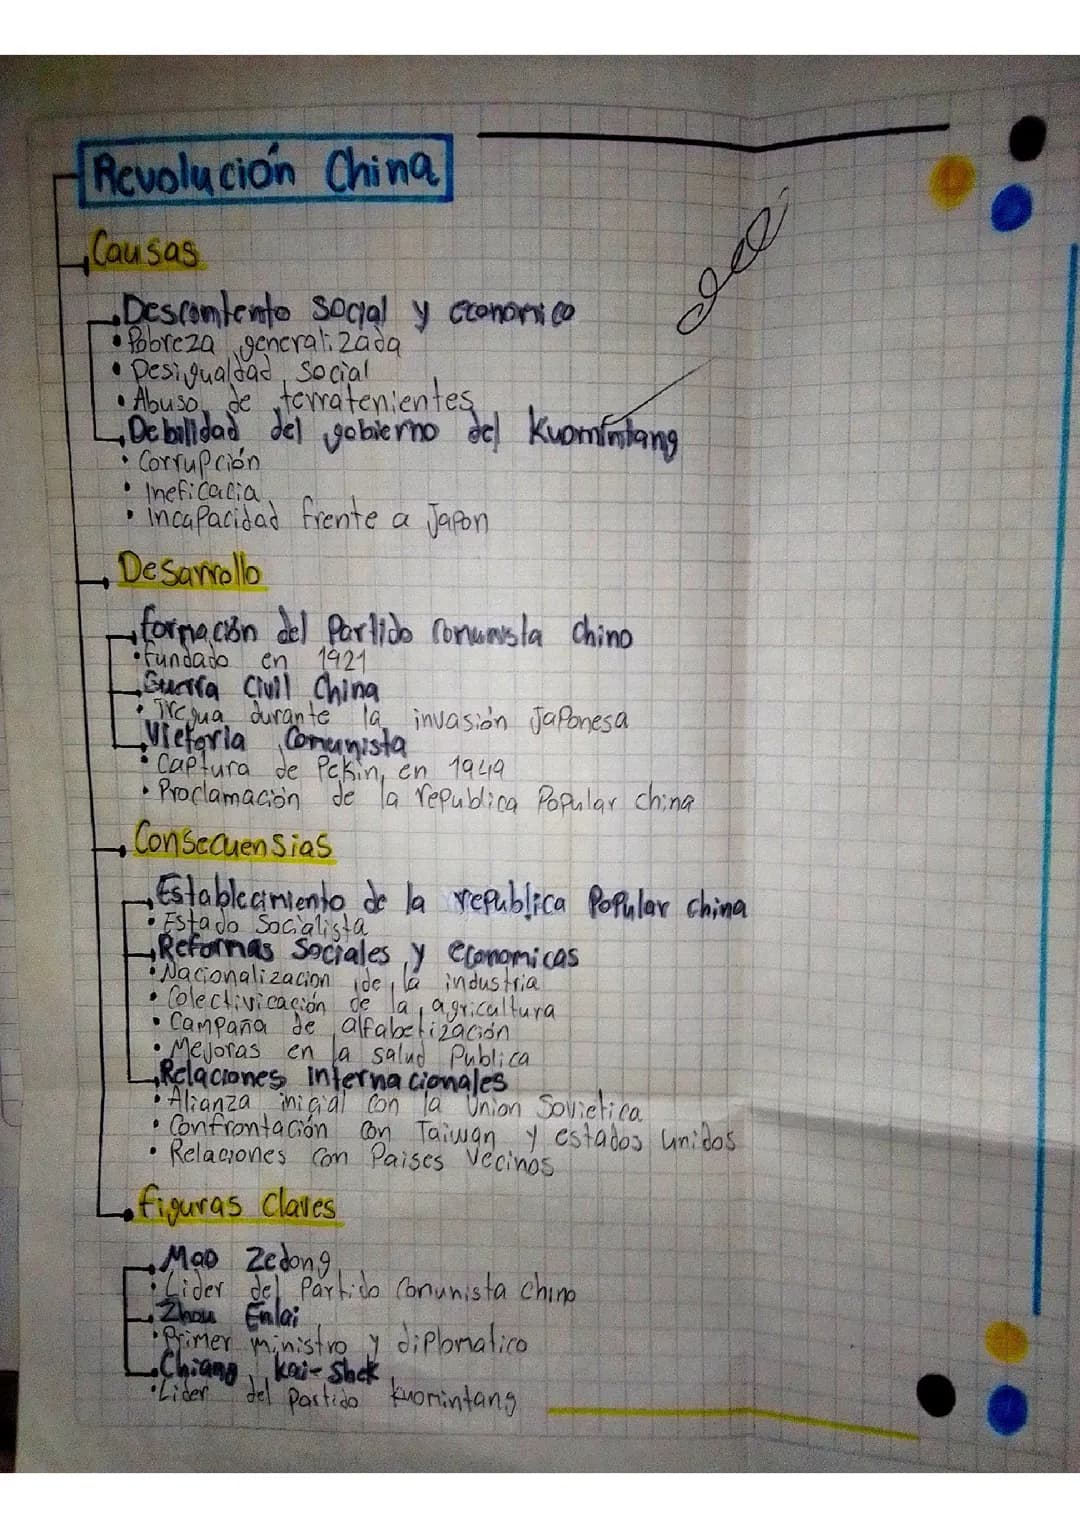 Revolución China
Causas
Descontento Social y economico
• Pobreza generalizada
• Desigualdad Social
• Abuso de terratenientes
Debilidad del gobierno del Kuomintang
• Corrupción
• Ineficacia
• Incapacidad frente a Japon
Desarrollo
formación del Partido Comunista Chino
• Fundado en 1921
Guerra Civil China
• Tregua durante la invasión Japonesa
Victoria Comunista
• Captura de Pekin, en 1949
• Proclamación de la republica Popular china
Consecuensias
Establecimiento de la republica Popular china
• Estado Socialista
Reformas Sociales y economicas
• Nacionalizacion de la industria
• Colectivicación de la agricultura
• Campaña de alfabetización
• Mejoras en la salud Publica
Relaciones internacionales
• Alianza inicial con la Union Sovietica
• Confrontación con Taiwan y estados unidos
• Relaciones con Paises Vecinos
figuras Claves
Mao Zedong
• Lider del Partido Comunista Chino
Zhou Enlai
• Primer ministro y diplomatico
Chiang Kai-Shek
• Lider del partido kuomintang